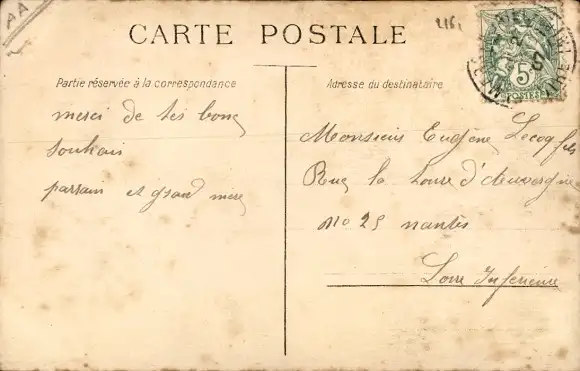 AA
2161
CARTE POSTALE
Partie réservée à la correspondance
Adresse du destinataire
merci de tes bons
souhais
parrain et grand mere
Monsieur Eugène Lecoq fils
Rue la Tour d'Auvergne
No 25 nantes
Loire Inferieure
5
POSTES